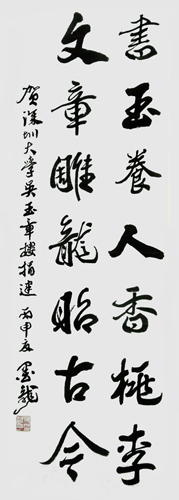 書玉養人香桃李
文章雕龍昭古今
賀深圳大學吳玉章樓捐建 丙申夏 墨龍